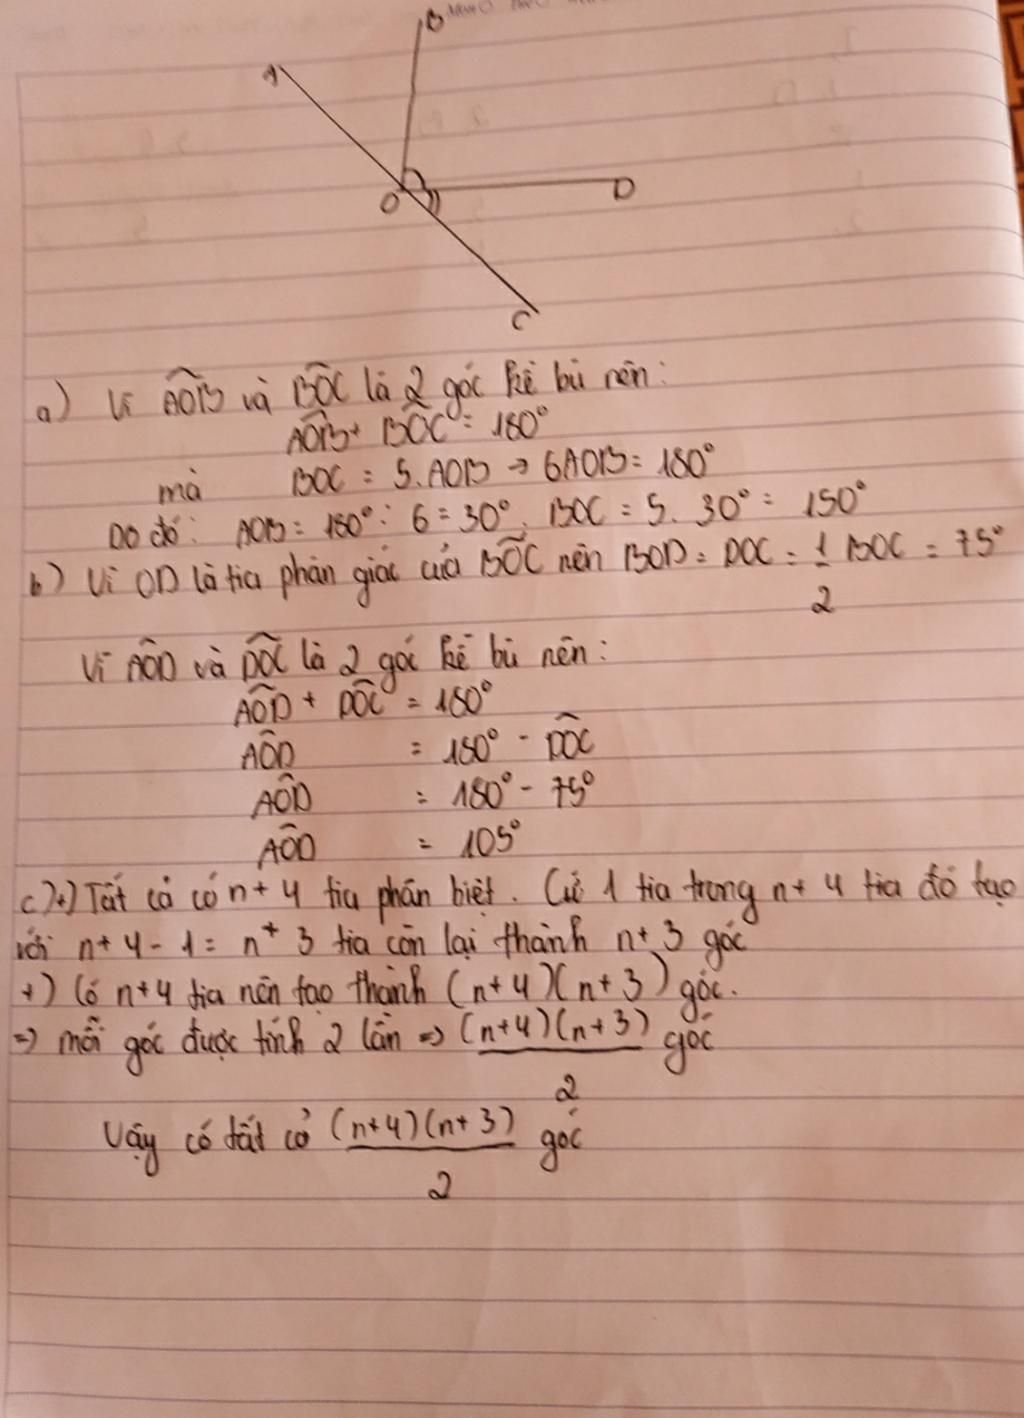 B
A
O
D
C
a) Vì AÔB và BÔC là 2 góc kề bù nên:
AÔB + BÔC = 180°
mà BOC = 5.AOB → 6AOB = 180°
Do đó: AOB = 180° : 6 = 30°. BOC = 5. 30° = 150°
b) Vì OD là tia phân giác của BÔC nên BOD = DOC = 1/2 BOC = 75°
Vì AÔD và DÔC là 2 góc kề bù nên:
AÔD + DÔC = 180°
AÔD = 180° - DÔC
AÔD = 180° - 75°
AÔD = 105°
c) +) Tất cả có n+4 tia phân biệt. Cứ 1 tia trong n+4 tia đó tạo
với n+4-1 = n+3 tia còn lại thành n+3 góc
+) Có n+4 tia nên tạo thành (n+4)(n+3) góc.
=> mỗi góc được tính 2 lần => (n+4)(n+3)/2 góc
Vậy có tất cả (n+4)(n+3)/2 góc